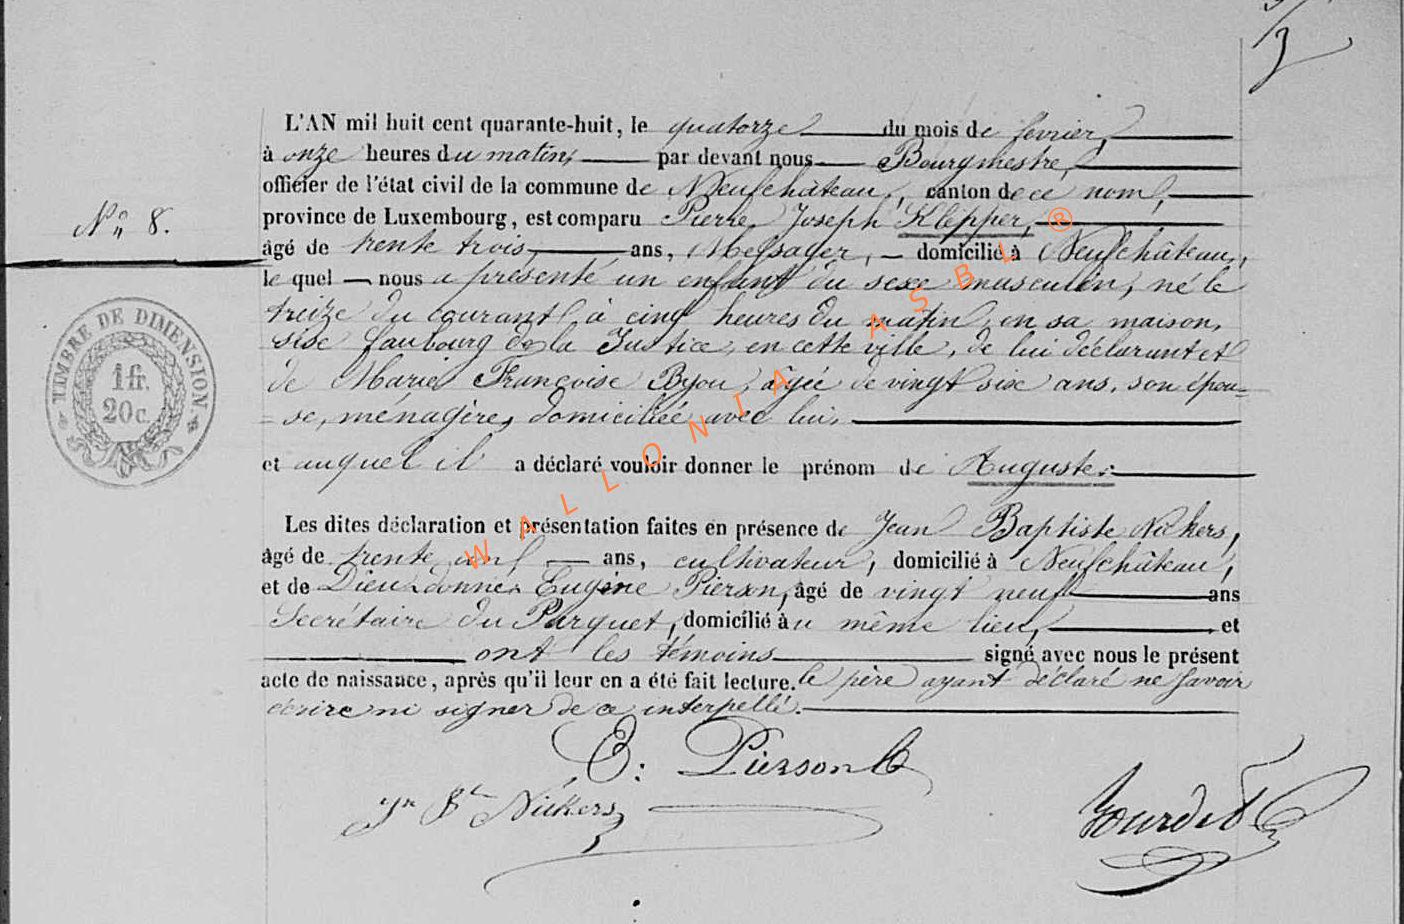 L'AN mil huit cent quarante-huit, le quatorze du mois de fevrier,
à onze heures du matin, par devant nous Bourgmestre,
officier de l'état civil de la commune de Neufchâteau, canton de ce nom,
province de Luxembourg, est comparu Pierre Joseph Klepper,
N° 8.
âgé de trente trois ans, Messager, domicilié à Neufchâteau,
le quel nous a présenté un enfant du sexe masculin, né le
treize du courant à cinq heures du matin, en sa maison,
sise faubourg de la Justice, en cette ville, de lui déclarant et
de Marie Françoise Byou, âgée de vingt six ans, son épou-
-se, ménagère, domiciliée avec lui,
et auquel il a déclaré vouloir donner le prénom de Auguste.
Les dites déclaration et présentation faites en présence de Jean Baptiste Nickers,
âgé de trente ans, cultivateur, domicilié à Neufchâteau,
et de Dieudonné Eugène Pierson, âgé de vingt neuf ans
Secrétaire du Parquet, domicilié au même lieu, et
ont les témoins signé avec nous le présent
acte de naissance, après qu'il leur en a été fait lecture. le père ayant déclaré ne savoir
écrire ni signer de ce interpellé.
E: Pierson
Jn Bte Nickers
Gourdet
TIMBRE DE DIMENSION
1 fr.
20 c.
WALLONIA ASBL ®